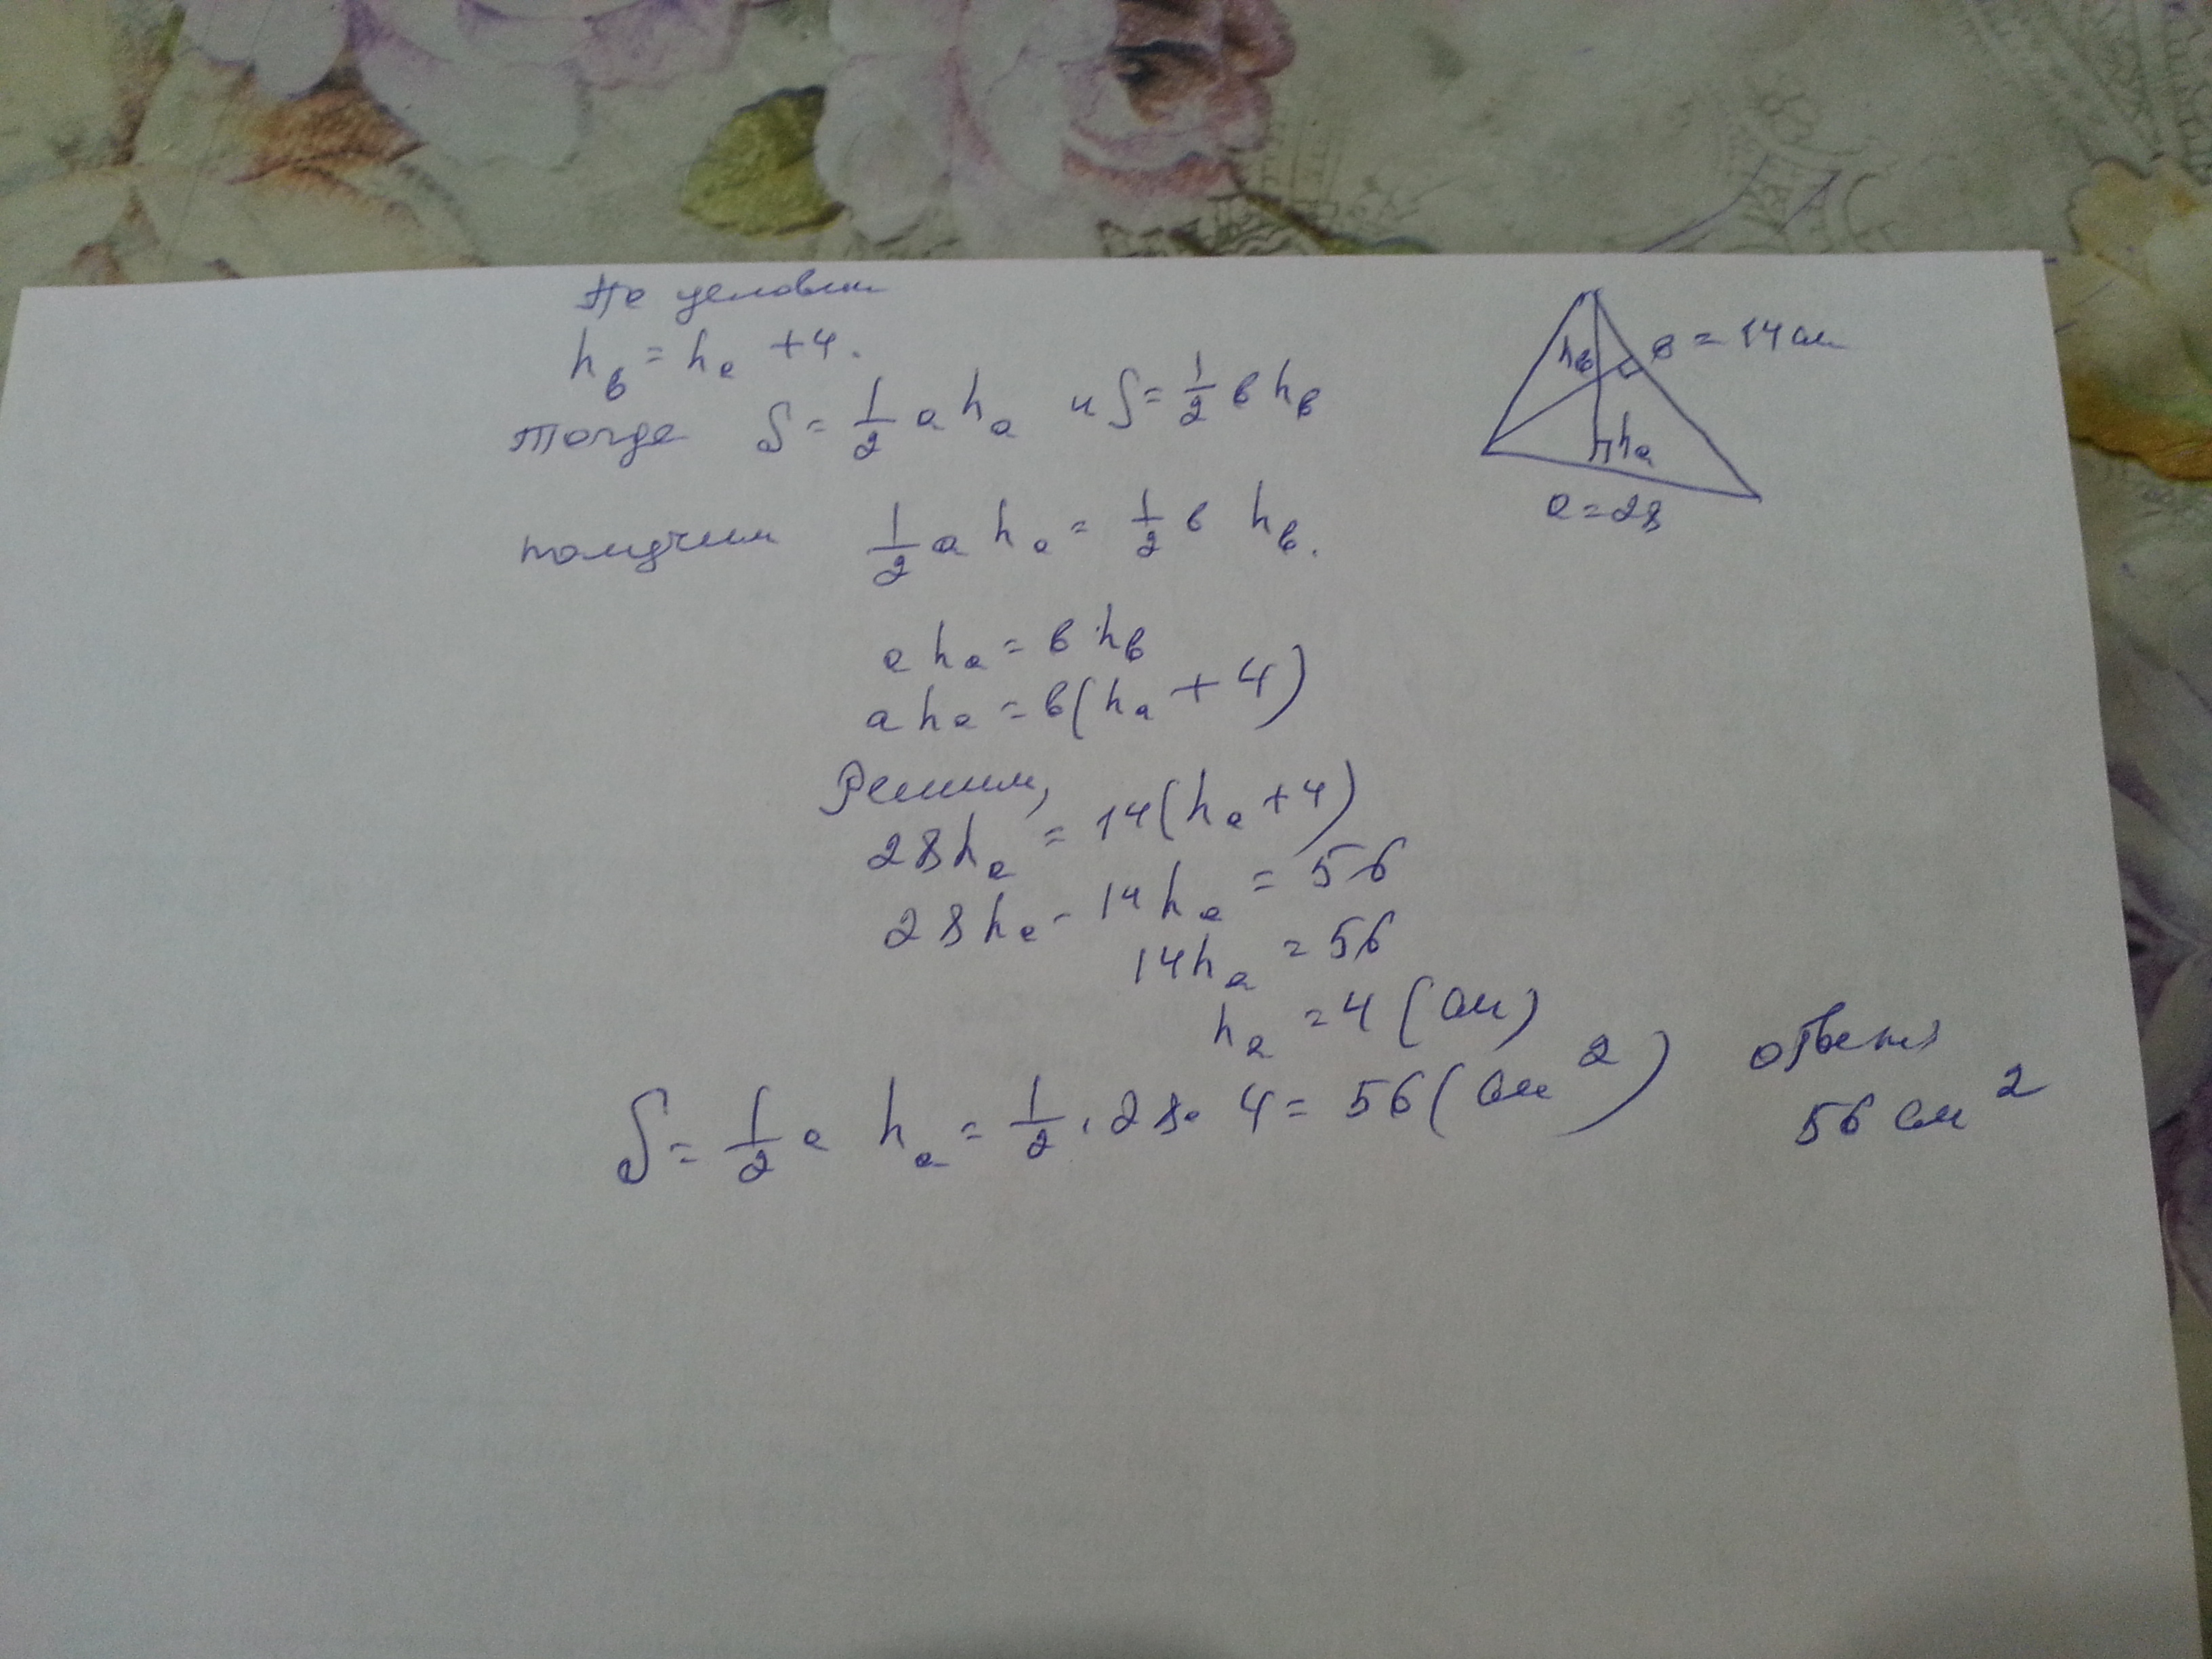 По условию
hв = hа + 4.
тогда S = 1/2 a hа и S = 1/2 в hв
получим 1/2 a hа = 1/2 в hв.
a hа = в · hв
a hа = в(hа + 4)
Решим,
28hа = 14(hа + 4)
28hа - 14hа = 56
14hа = 56
hа = 4 (см)
S = 1/2 a hа = 1/2 · 28 · 4 = 56 (см²)
ответ
56 см²
hв
в = 14 см
hа
а = 28